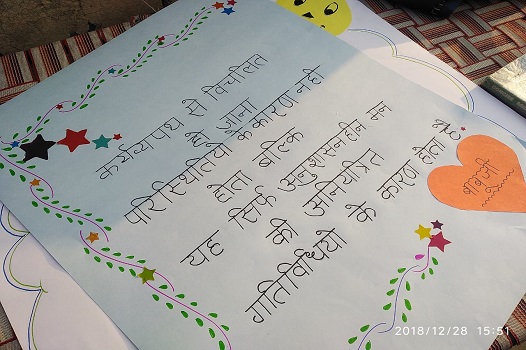 कर्यव्यपथ से विचलित
हो जाना
परिस्थितियों के कारण नहीं
होता बल्कि
यह सिर्फ अनुशासनहीन मन
की अनियंत्रित
गतिविधियों के कारण होता है
बाबूजी
2018/12/28 15:51